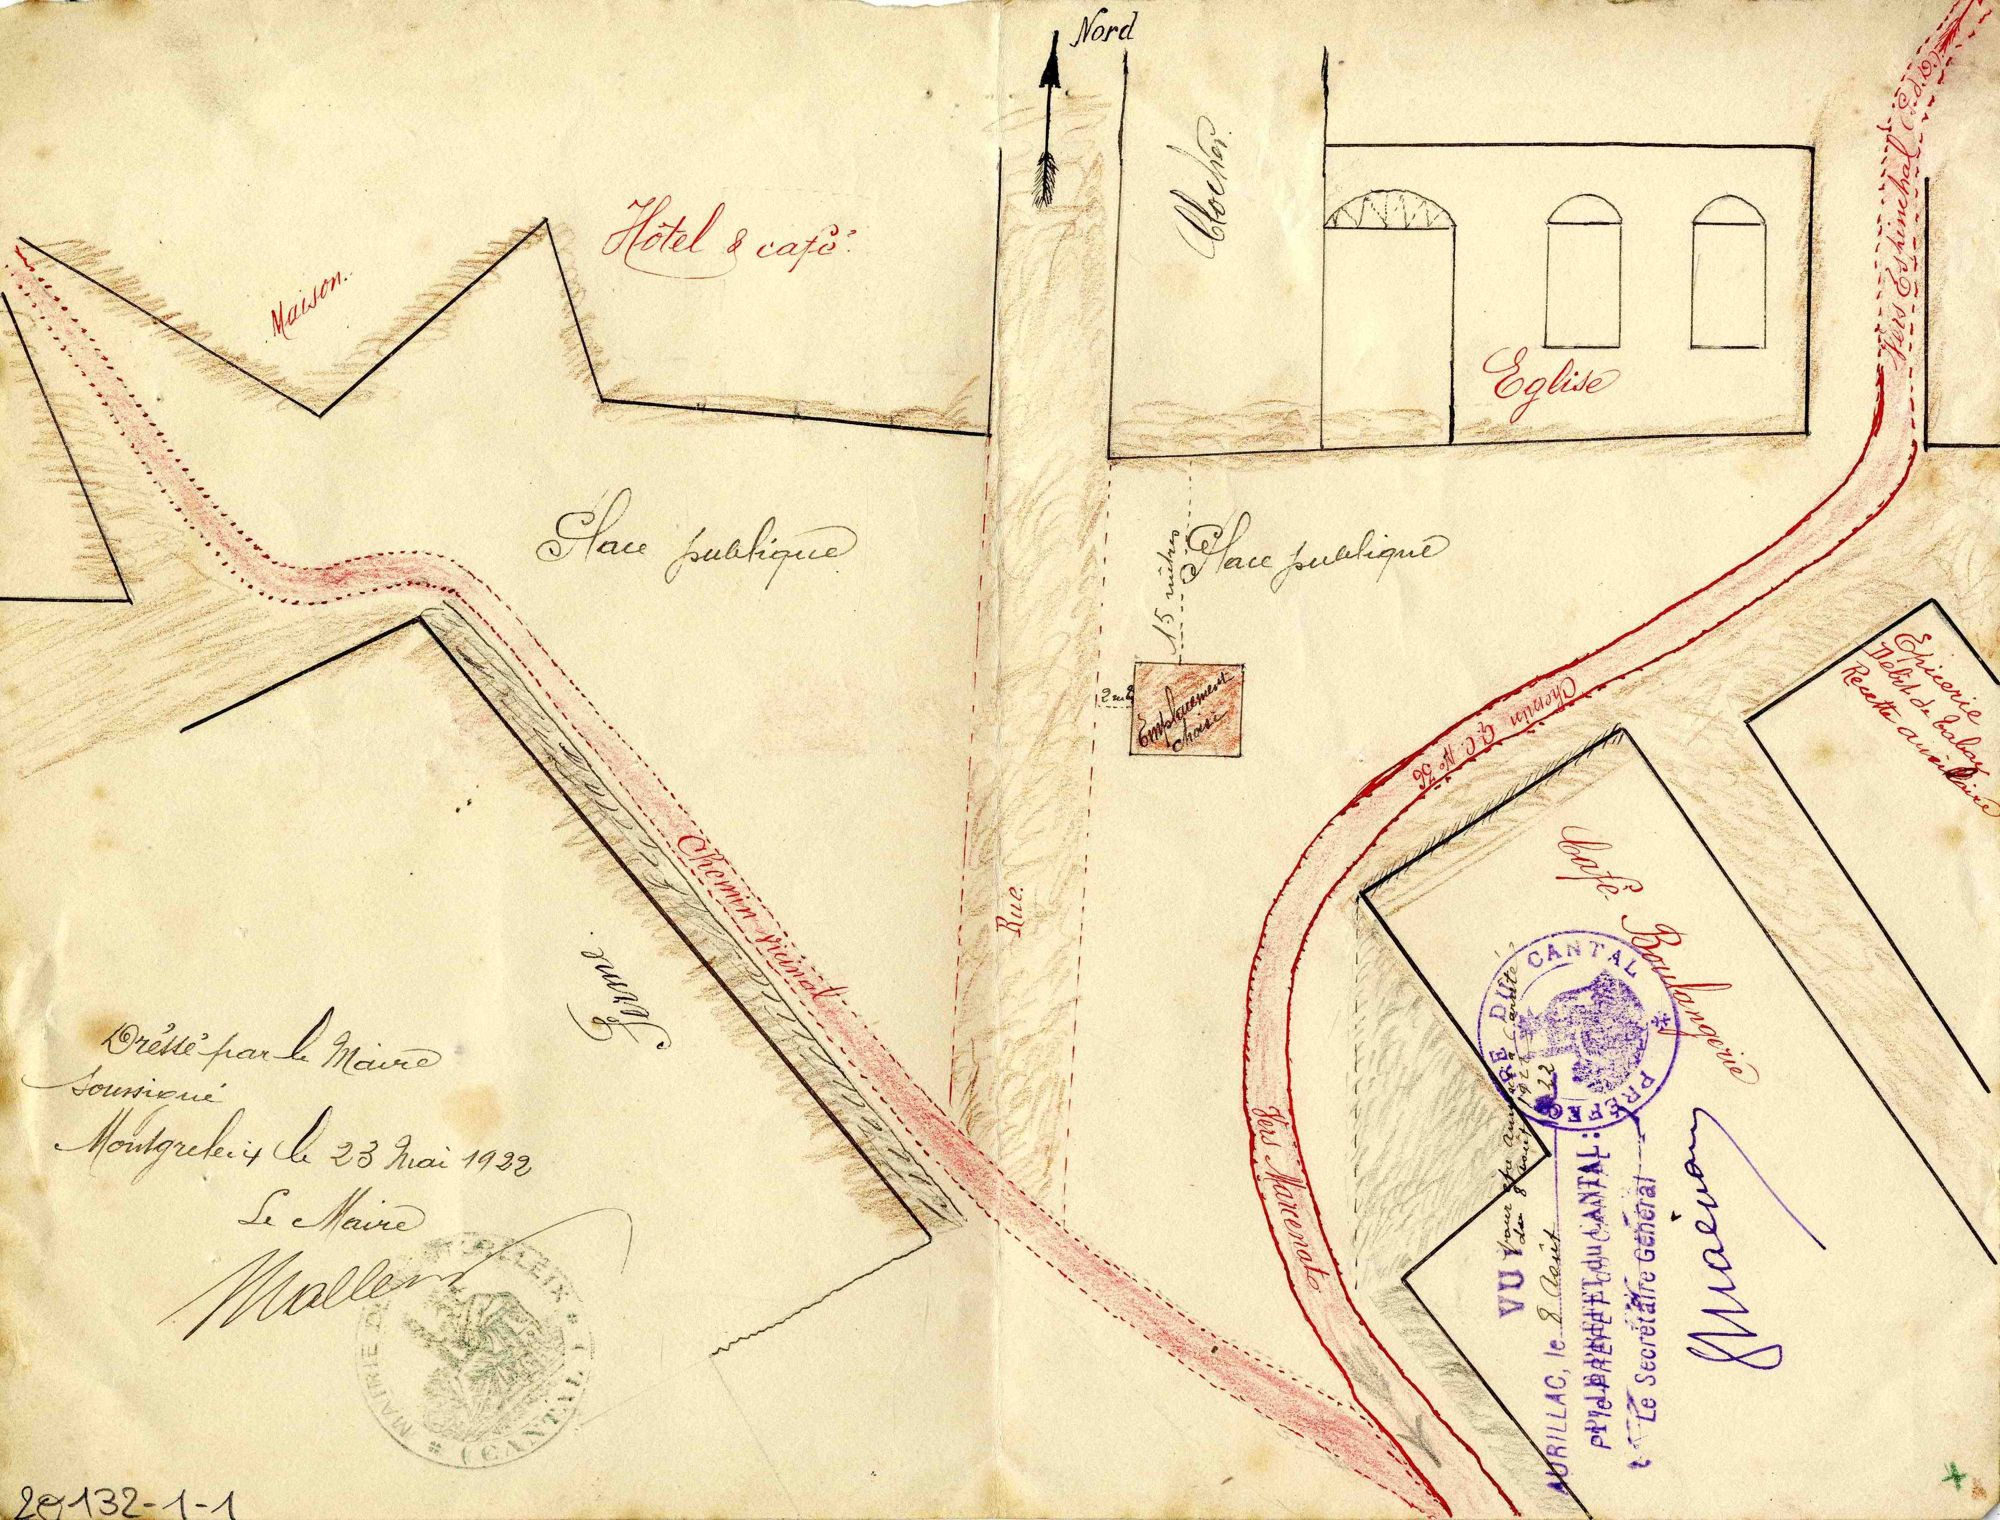 Nord
Clocher.
Vers Espinchal (P.d.D.)
Hôtel & café.
Maison.
Eglise
Place publique
Place publique
15 mètres
2 m
Emplacement
choisi
Chemin G.C. No 36
Epicerie
Débit de tabac
Recette auxiliaire
Café
Boulangerie
Chemin vicinal
Rue.
Ferme.
Vers Marcenat
Dréssé par le Maire
soussigné
Montgreleix le 23 Mai 1922
Le Maire
MAIRIE DE MONTGRELEIX
* (CANTAL) *
PREFECTURE DU CANTAL *
VU pour être annexé à l'arrêté
du 8 août 1922
AURILLAC, le 8 Août 1922
Pr le PREFET du CANTAL:
Le Secrétaire Général
2O132-1-1